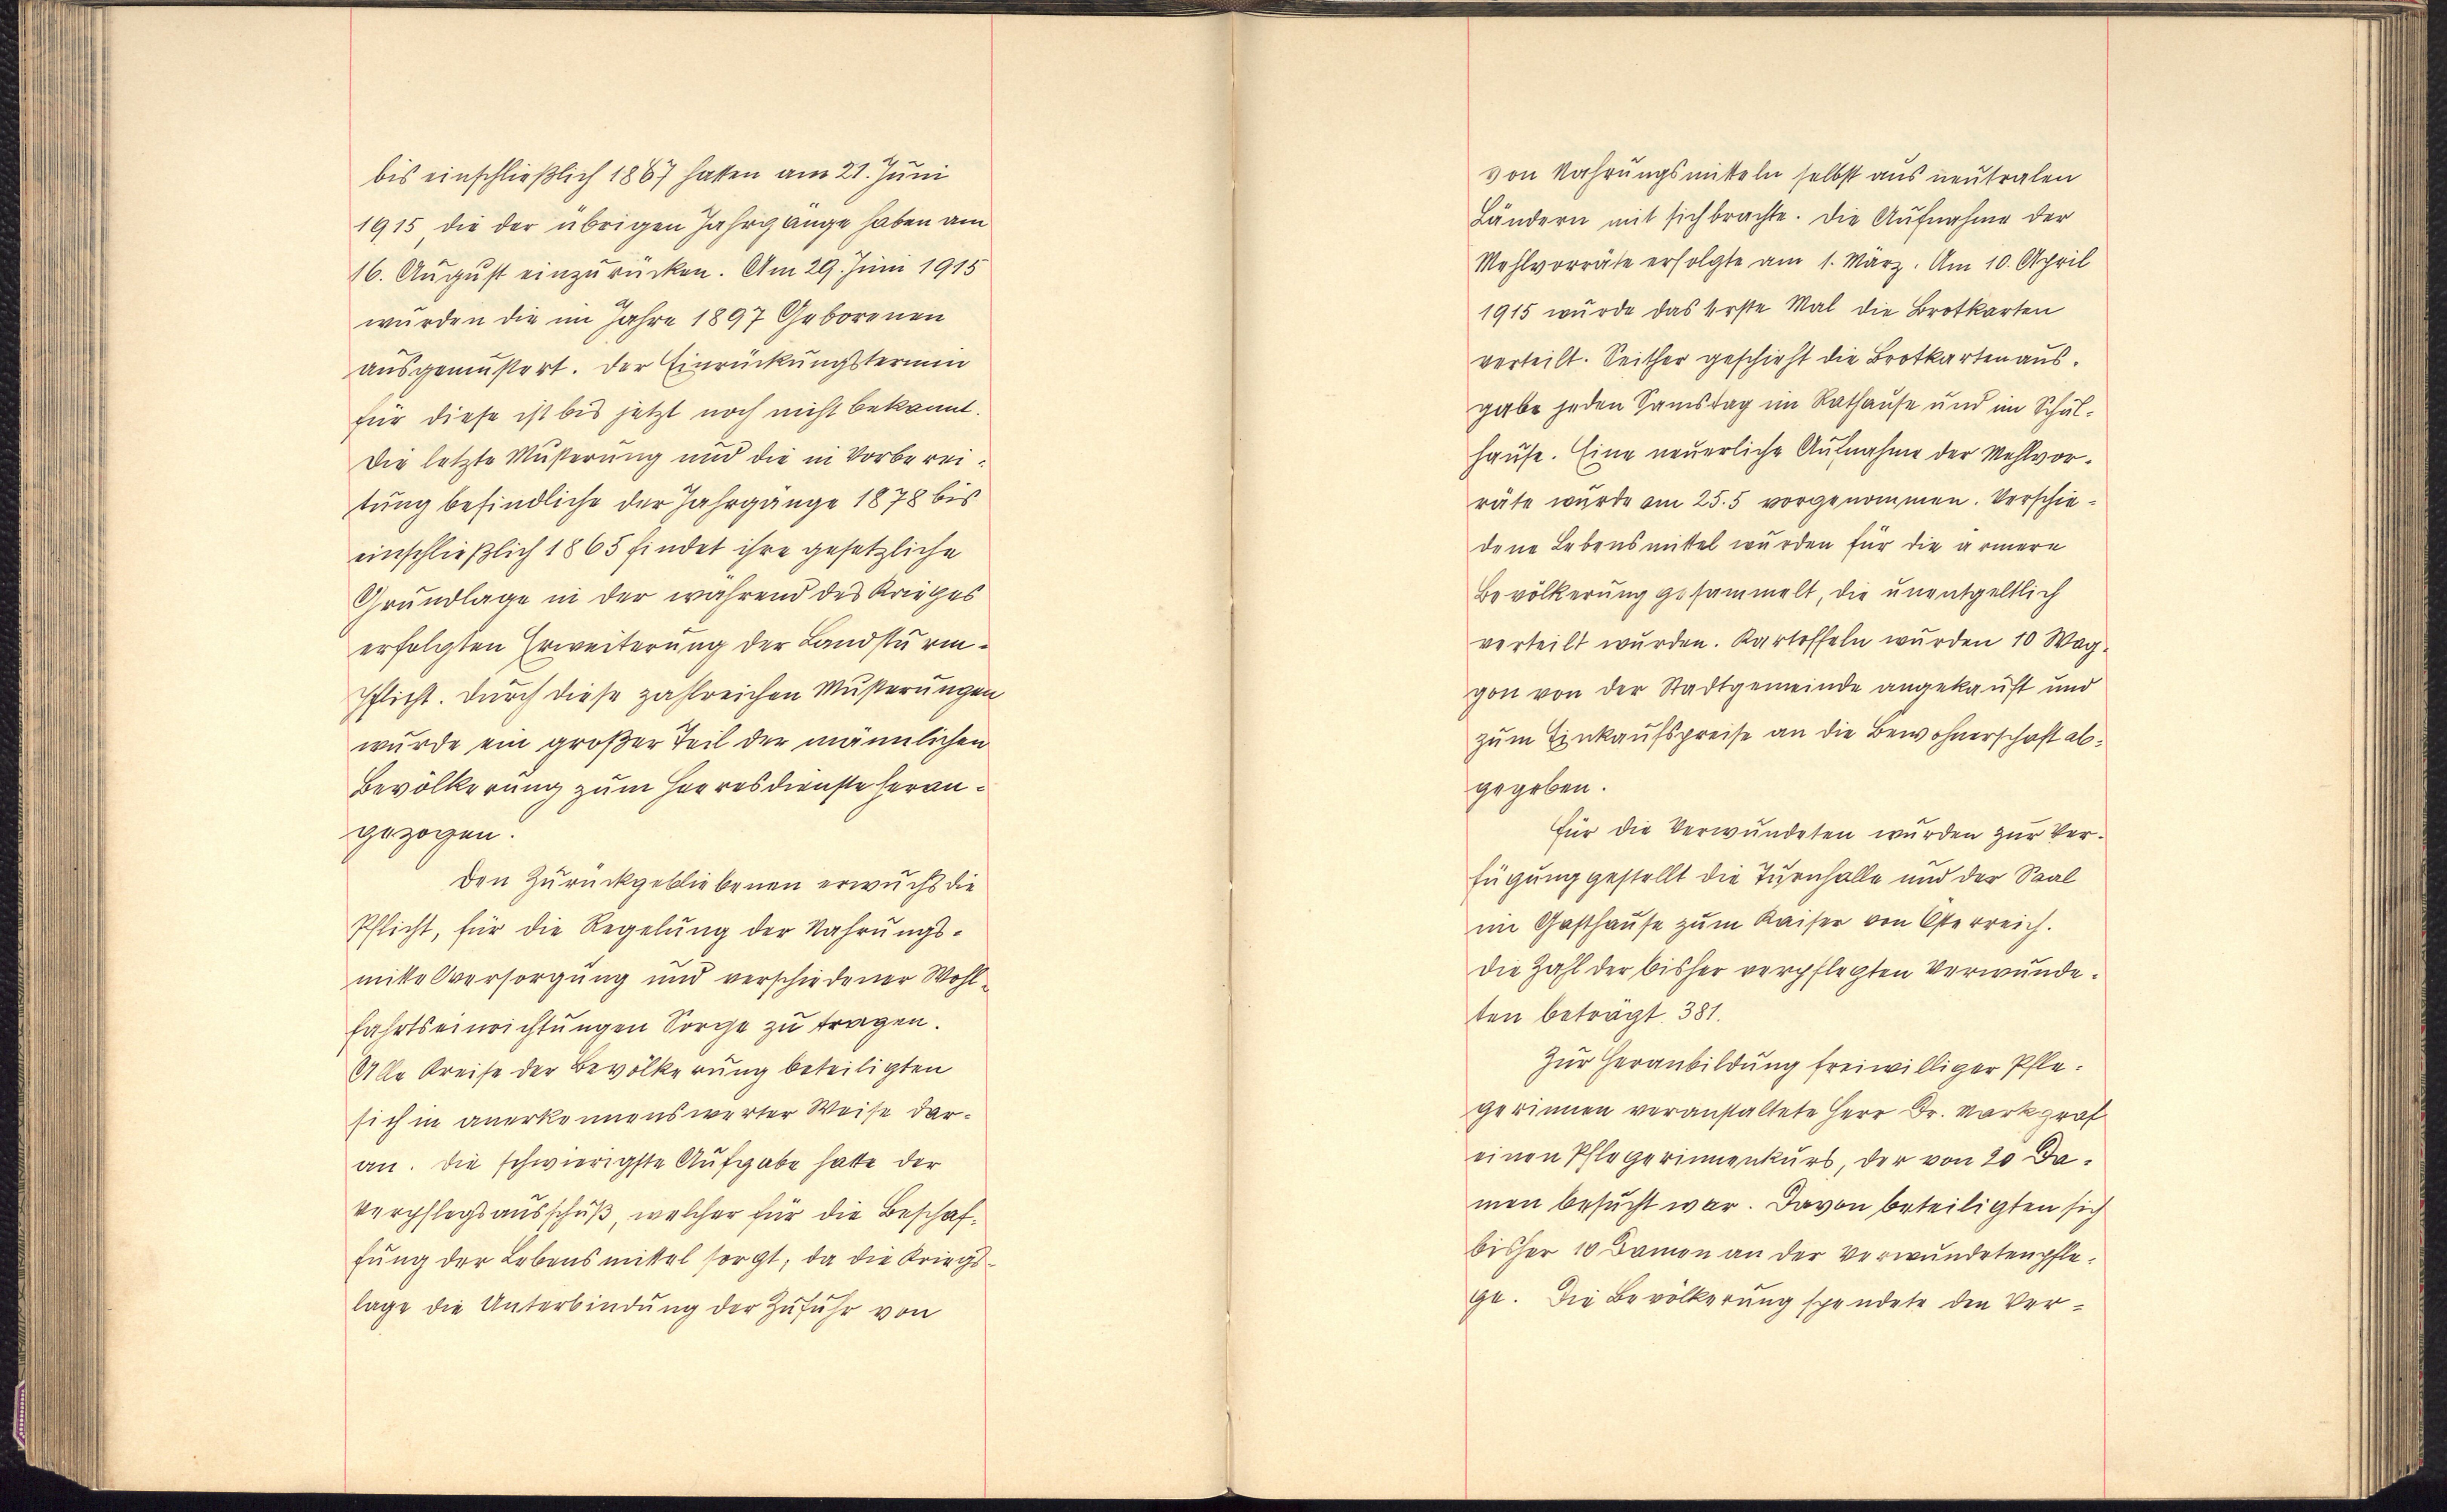 bis einschließlich 1867 hatten am 21. Juni
1915, die der übrigen Jahrgänge haben am
16. August einzurücken. Am 29. Juni 1915
wurden die im Jahre 1897 Geborenen
ausgemustert. Der Einrückungstermin
für diese ist bis jetzt noch nicht bekannt.
Die letzte Musterung und die in Vorberei-
tung befindliche der Jahrgänge 1878 bis
einschließlich 1865 findet ihre gesetzliche
Grundlage in der während des Krieges
erfolgten Erweiterung der Landsturm-
pflicht. Durch diese zahlreichen Musterungen
wurde ein großer Teil der männlichen
Bevölkerung zum Heeresdienste heran-
gezogen.
Den Zurückgebliebenen erwuchs die
Pflicht, für die Regelung der Nahrungs-
mittelversorgung und verschiedener Wohl-
fahrtseinrichtungen Sorge zu tragen.
Alle Kreise der Bevölkerung beteiligten
sich in anerkennenswerter Weise dar-
an. Die schwierigste Aufgabe hatte der
Verpflegsausschuß, welcher für die Beschaf-
fung der Lebensmittel sorgt, da die Kriegs-
lage die Unterbindung der Zufuhr von
von Nahrungsmitteln selbst aus neutralen
Ländern mit sich brachte. Die Aufnahme der
Mehlvorräte erfolgte am 1. März. Am 10. April
1915 wurde das erste Mal die Brotkarten
verteilt. Seither geschieht die Brotkartenaus-
gabe jeden Samstag im Rathause und im Schul-
hause. Eine neuerliche Aufnahme der Mehlvor-
räte wurde am 25.5 vorgenommen. Verschie-
dene Lebensmittel wurden für die ärmere
Bevölkerung gesammelt, die unentgeltlich
verteilt wurden. Kartoffeln wurden 10 Wag-
gon von der Stadtgemeinde angekauft und
zum Einkaufspreise an die Bewohnerschaft ab-
gegeben.
Für die Verwundeten wurden zur Ver-
fügung gestellt die Turnhalle und der Saal
im Gasthause zum Kaiser von Österreich.
Die Zahl der bisher verpflegten Verwunde-
ten beträgt 381.
Zur Heranbildung freiwilliger Pfle-
gerinnen veranstaltete Herr Dr. Markgraf
einen Pflegerinnenkurs, der von 20 Da-
men besucht war. Davon beteiligten sich
bisher 10 Damen an der Verwundetenpfle-
ge. Die Bevölkerung spendete den Ver-